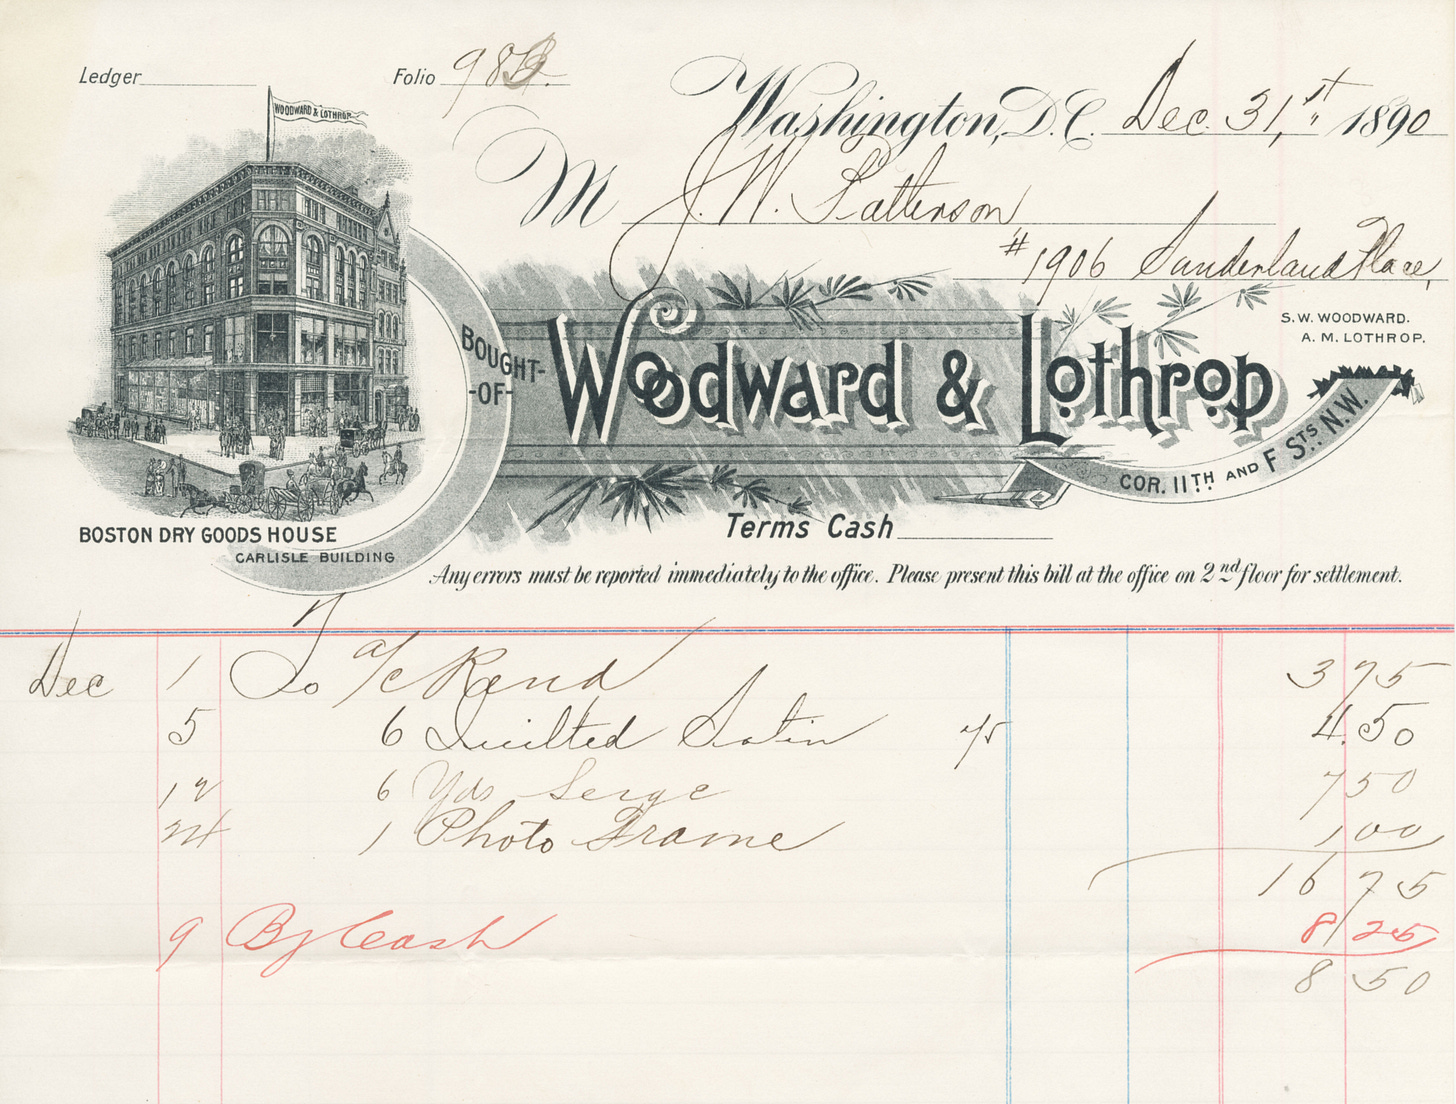 Ledger
Folio 983
WOODWARD & LOTHROP
Washington, D.C. Dec. 31,st 1890
M J. W. Patterson
#1906 Sunderland Place,
S. W. WOODWARD.
A. M. LOTHROP.
BOUGHT-
-OF-
Woodward & Lothrop
COR. 11TH AND F STS. N.W.
Terms Cash
BOSTON DRY GOODS HOUSE
CARLISLE BUILDING
Any errors must be reported immediately to the office. Please present this bill at the office on 2nd floor for settlement.
Dec 1 To a/c Rend 3 75
5 6 Quilted Satin 75 4.50
12 6 Yds Serge 7 50
24 1 Photo Frame 1 00
16 75
9 By Cash 8 25
8 50